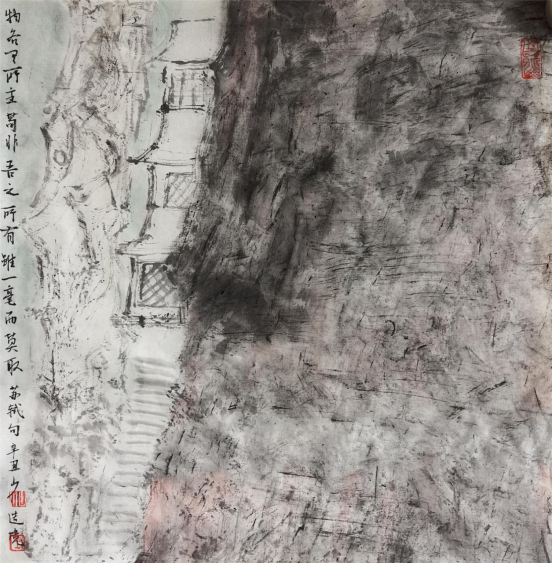 物各有所主苟非吾之所有雖一毫而莫取 苏轼句 辛丑